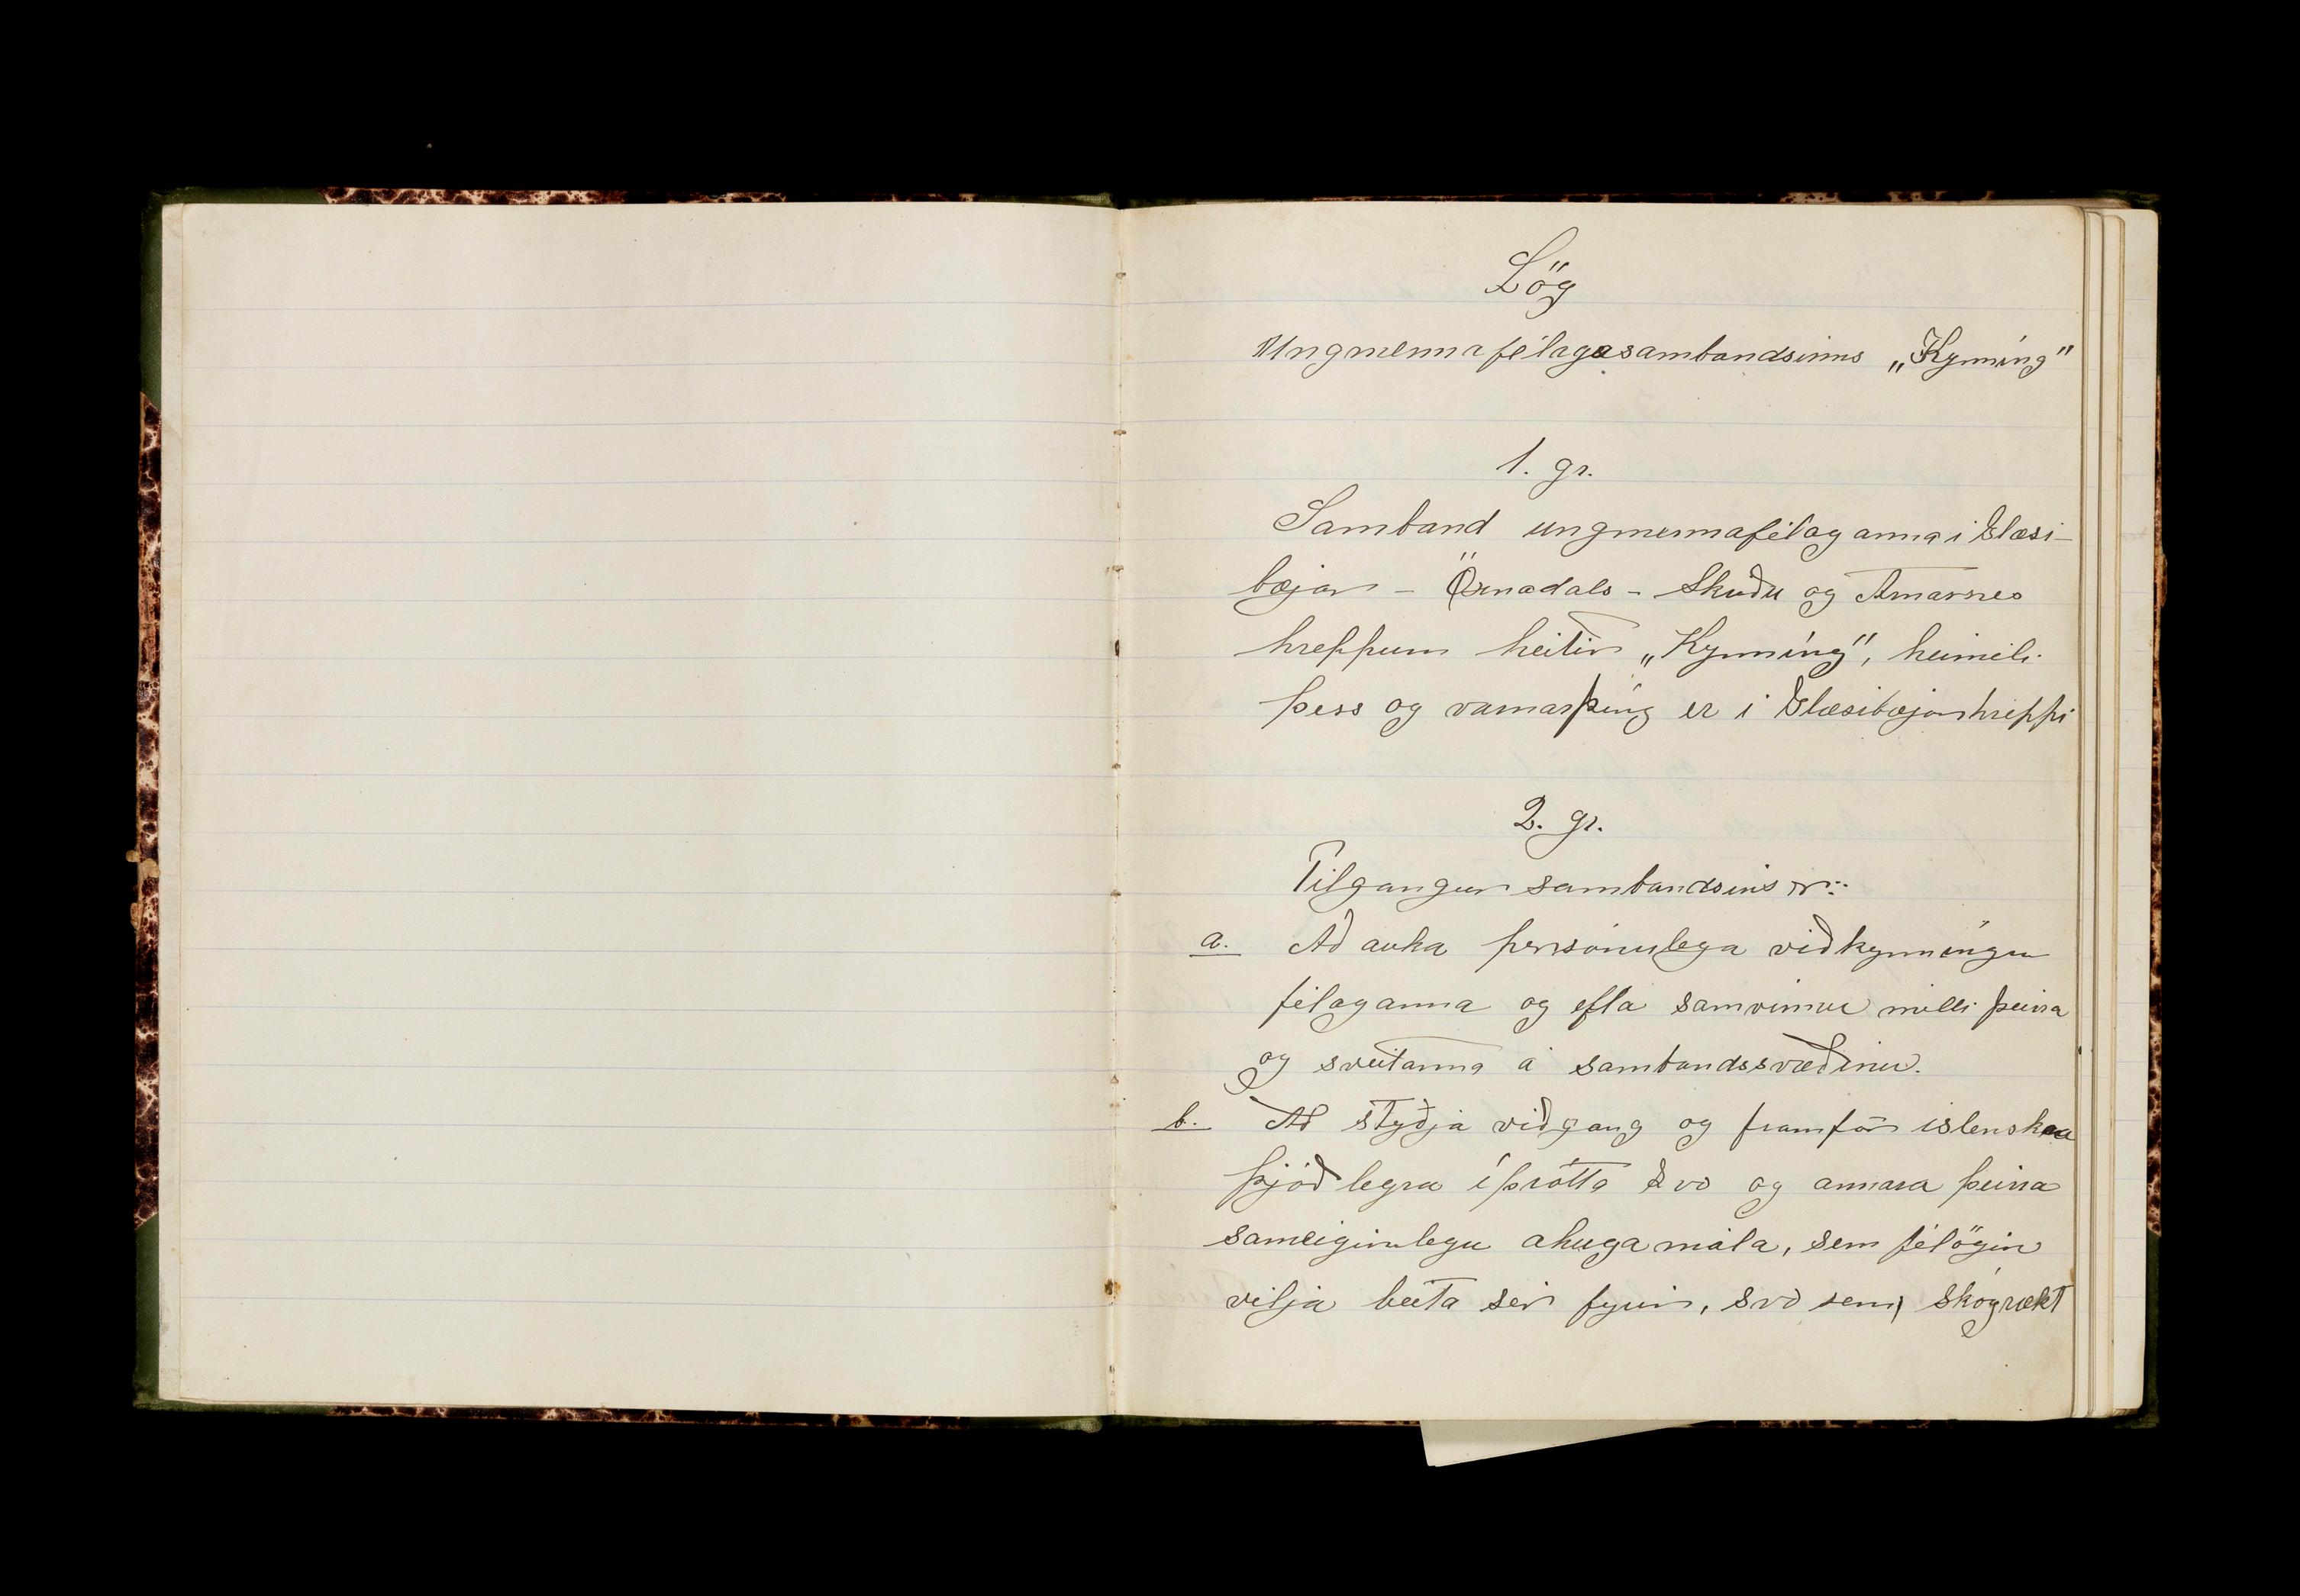 Lög
Ungmennafélagasambandsinns „Kynning"
1. gr.
Samband ungmennafélaganna i Glæsi-
bæjar - Öxnadals - Skriðu og Arnarnes
hreppum heitir „Kynning", heimili
þess og varnarþing er i Glæsibæjarhreppi
2. gr.
Tilgangur sambandsins er:
a. Að auka persónulega viðkynningu
félaganna og efla samvinnu milli þeirra
og sveitanna á sambandssvæðinu.
b. Að styðja viðgang og framför islenskra
þjóðlegra íþrótta svo og annara þeirra
sameiginlegu ahugamála, sem félögin
vilja beita sér fyrir, svo sem, skógrækt